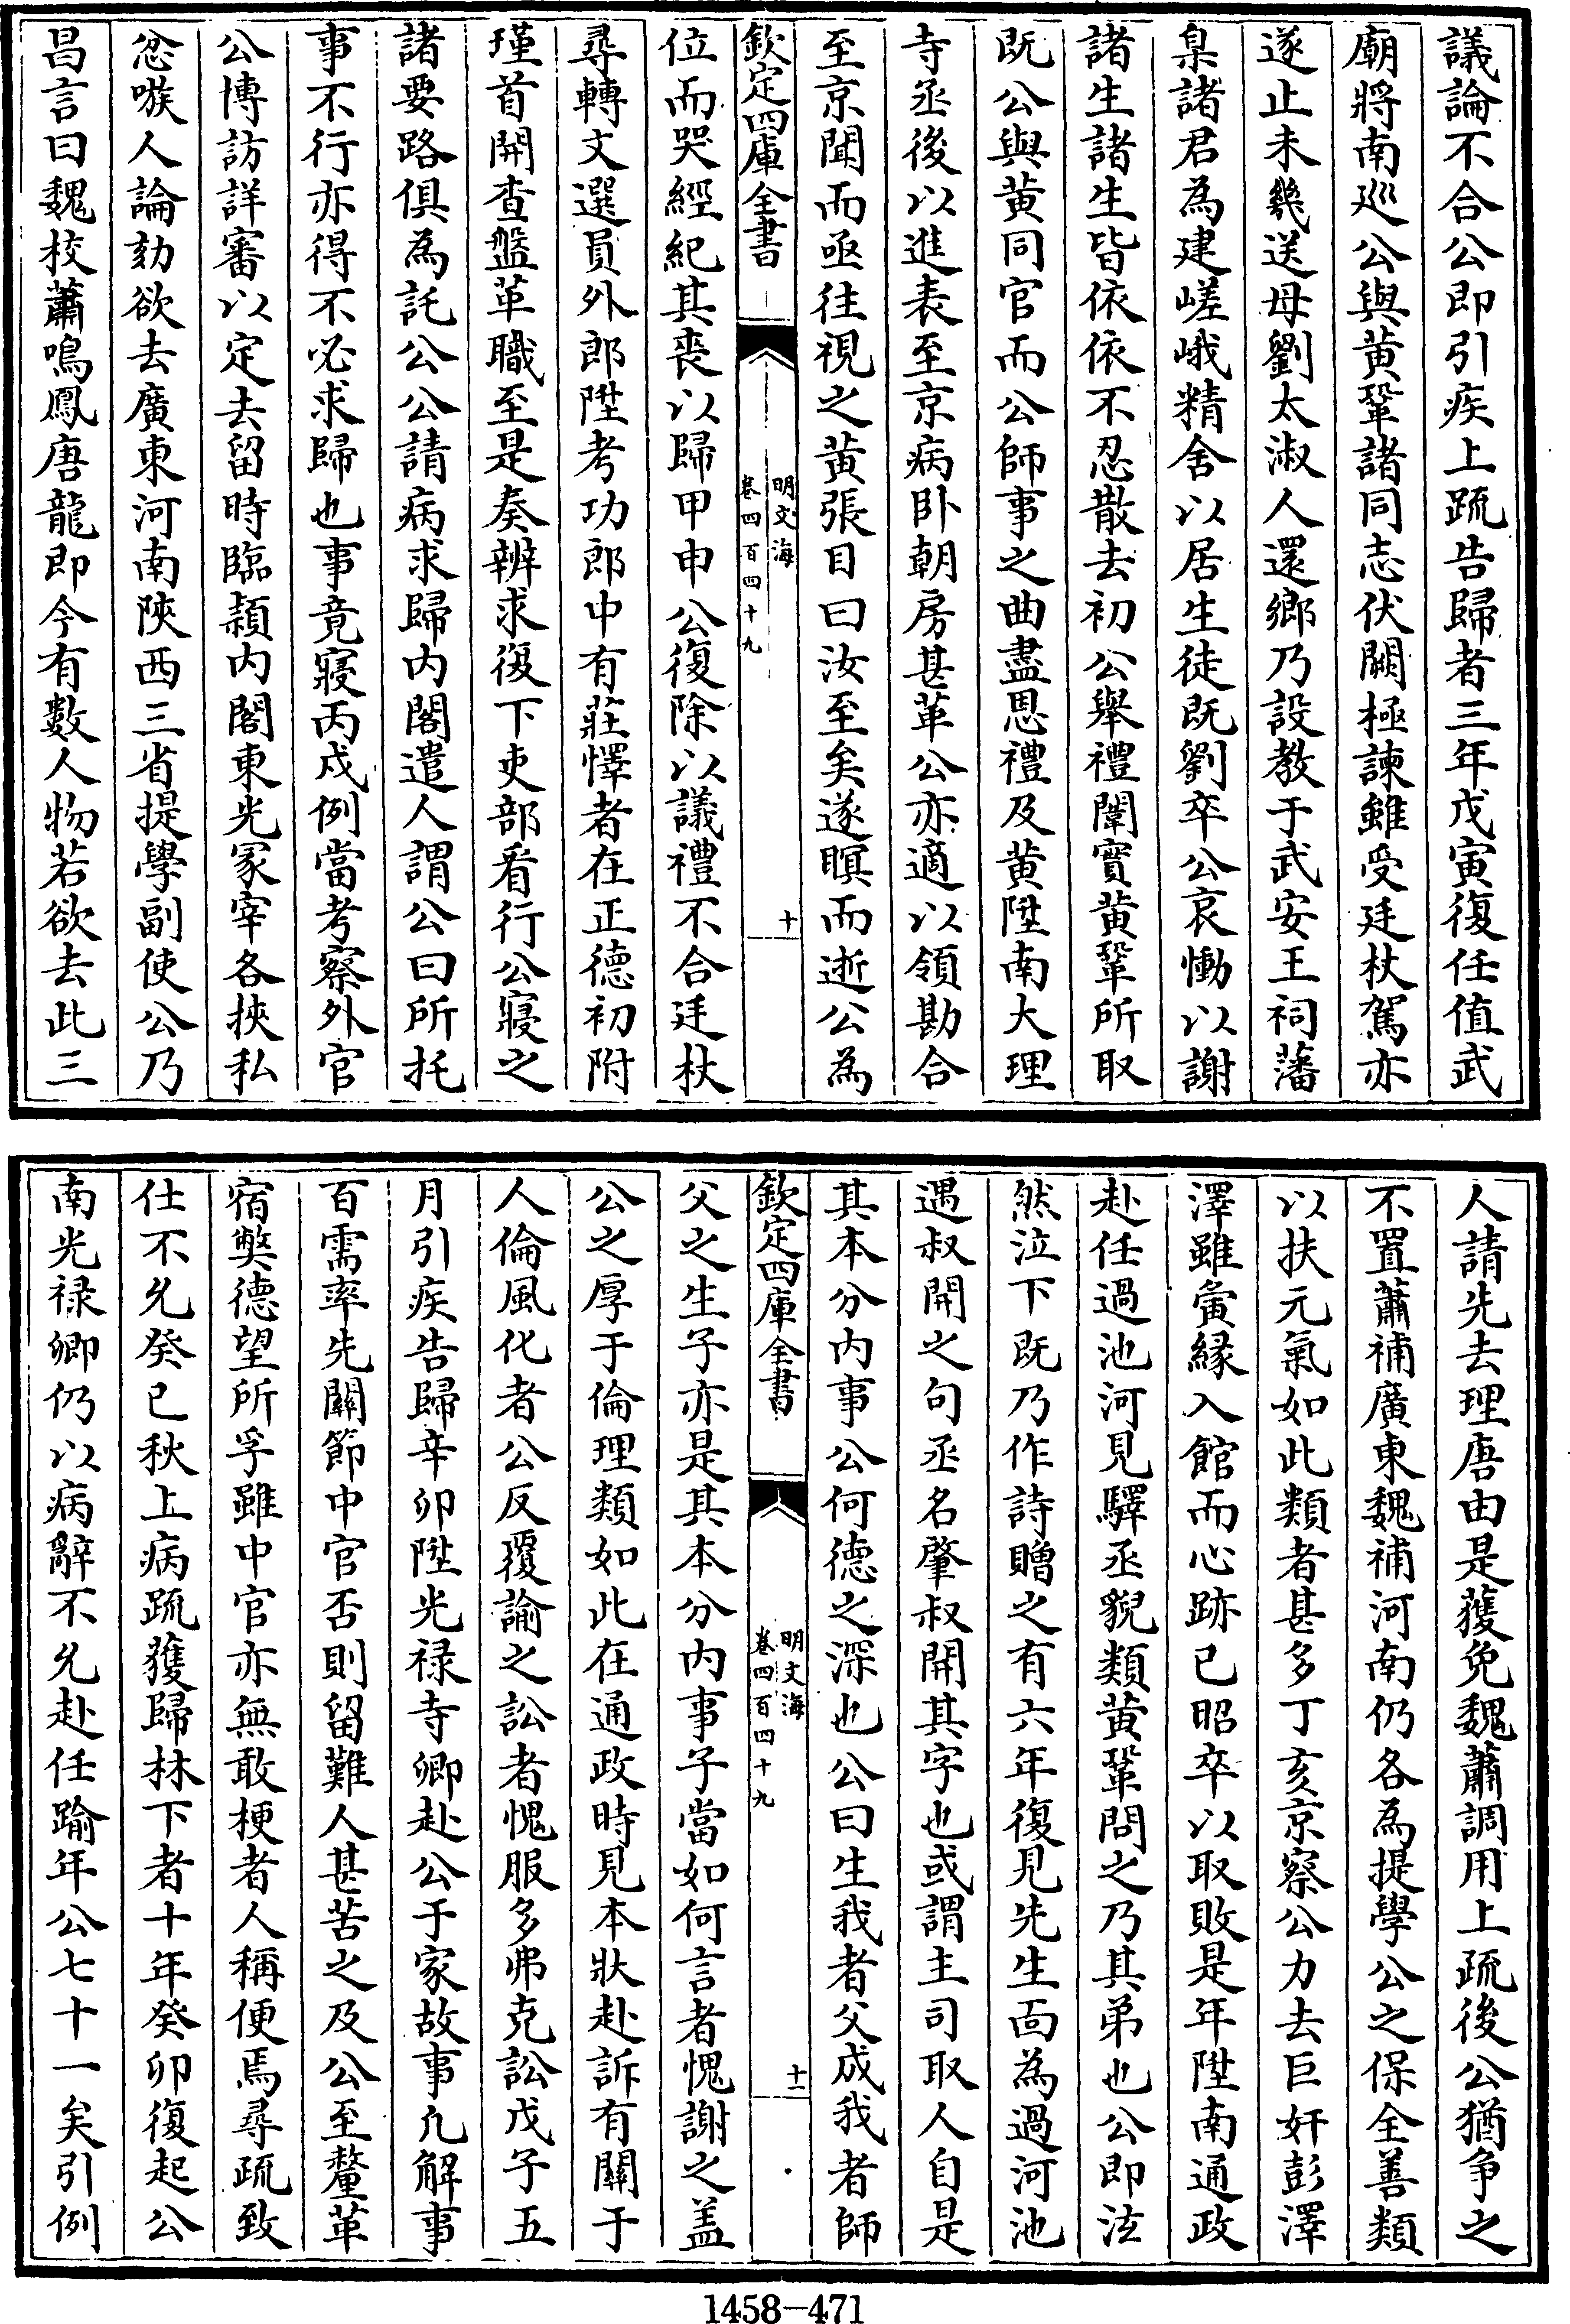 議論不合公即引疾上疏告歸者三年戊寅復任值武
廟將南巡公與黄鞏諸同志伏闕極諫雖受廷杖駕亦
遂止未幾送母劉太淑人還鄉乃設教于武安王祠藩
臬諸君為建嵯峨精舍以居生徒既劉卒公哀慟以謝
諸生諸生皆依依不忍散去初公舉禮闈實黄鞏所取
既公與黄同官而公師事之曲盡恩禮及黄陞南大理
寺丞後以進表至京病卧朝房甚革公亦適以領勘合
至京聞而亟往視之黄張目曰汝至矣遂瞑而逝公為
欽定四庫全書
明文海
卷四百四十九
十
位而哭經紀其喪以歸甲申公復除以議禮不合廷杖
尋轉文選員外郎陞考功郎中有莊懌者在正德初附
瑾首開查盤革職至是奏辨求復下吏部看行公寢之
諸要路俱為託公公請病求歸内閣遣人謂公曰所托
事不行亦得不必求歸也事竟寢丙戌例當考察外官
公博訪詳審以定去留時臨頴内閣東光冢宰各挾私
忿嗾人論劾欲去廣東河南陜西三省提學副使公乃
昌言曰魏校蕭鳴鳳唐龍即今有數人物若欲去此三
人請先去理唐由是獲免魏蕭調用上疏後公猶争之
不置蕭補廣東魏補河南仍各為提學公之保全善類
以扶元氣如此類者甚多丁亥京察公力去巨奸彭澤
澤雖夤緣入館而心跡已昭卒以取敗是年陞南通政
赴任過池河見驛丞貌類黄鞏問之乃其弟也公即泫
然泣下既乃作詩贈之有六年復見先生面為過河池
遇叔開之句丞名肇叔開其字也或謂主司取人自是
其本分内事公何德之深也公曰生我者父成我者師
欽定四庫全書
明文海
卷四百四十九
十一
父之生子亦是其本分内事子當如何言者愧謝之盖
公之厚于倫理類如此在通政時見本狀赴訴有關于
人倫風化者公反覆諭之訟者愧服多弗克訟戊子五
月引疾告歸辛卯陞光禄寺卿赴公于家故事凡解事
百需率先關節中官否則留難人甚苦之及公至釐革
宿弊德望所孚雖中官亦無敢梗者人稱便焉尋疏致
仕不允癸巳秋上病疏獲歸林下者十年癸卯復起公
南光禄卿仍以病辭不允赴任踰年公七十一矣引例
1458-471